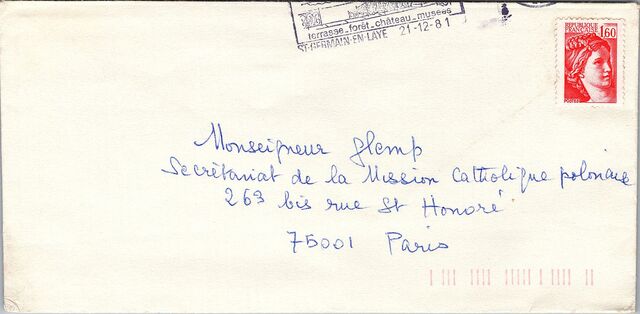 terrasse_forêt_château_musées
ST-GERMAIN-EN-LAYE 21-12-81
REPUBLIQUE
FRANCAISE 1,60
POSTES
Monseigneur Glemp
Secrétariat de la Mission Catholique polonaise
263 bis rue St Honoré
75001 Paris